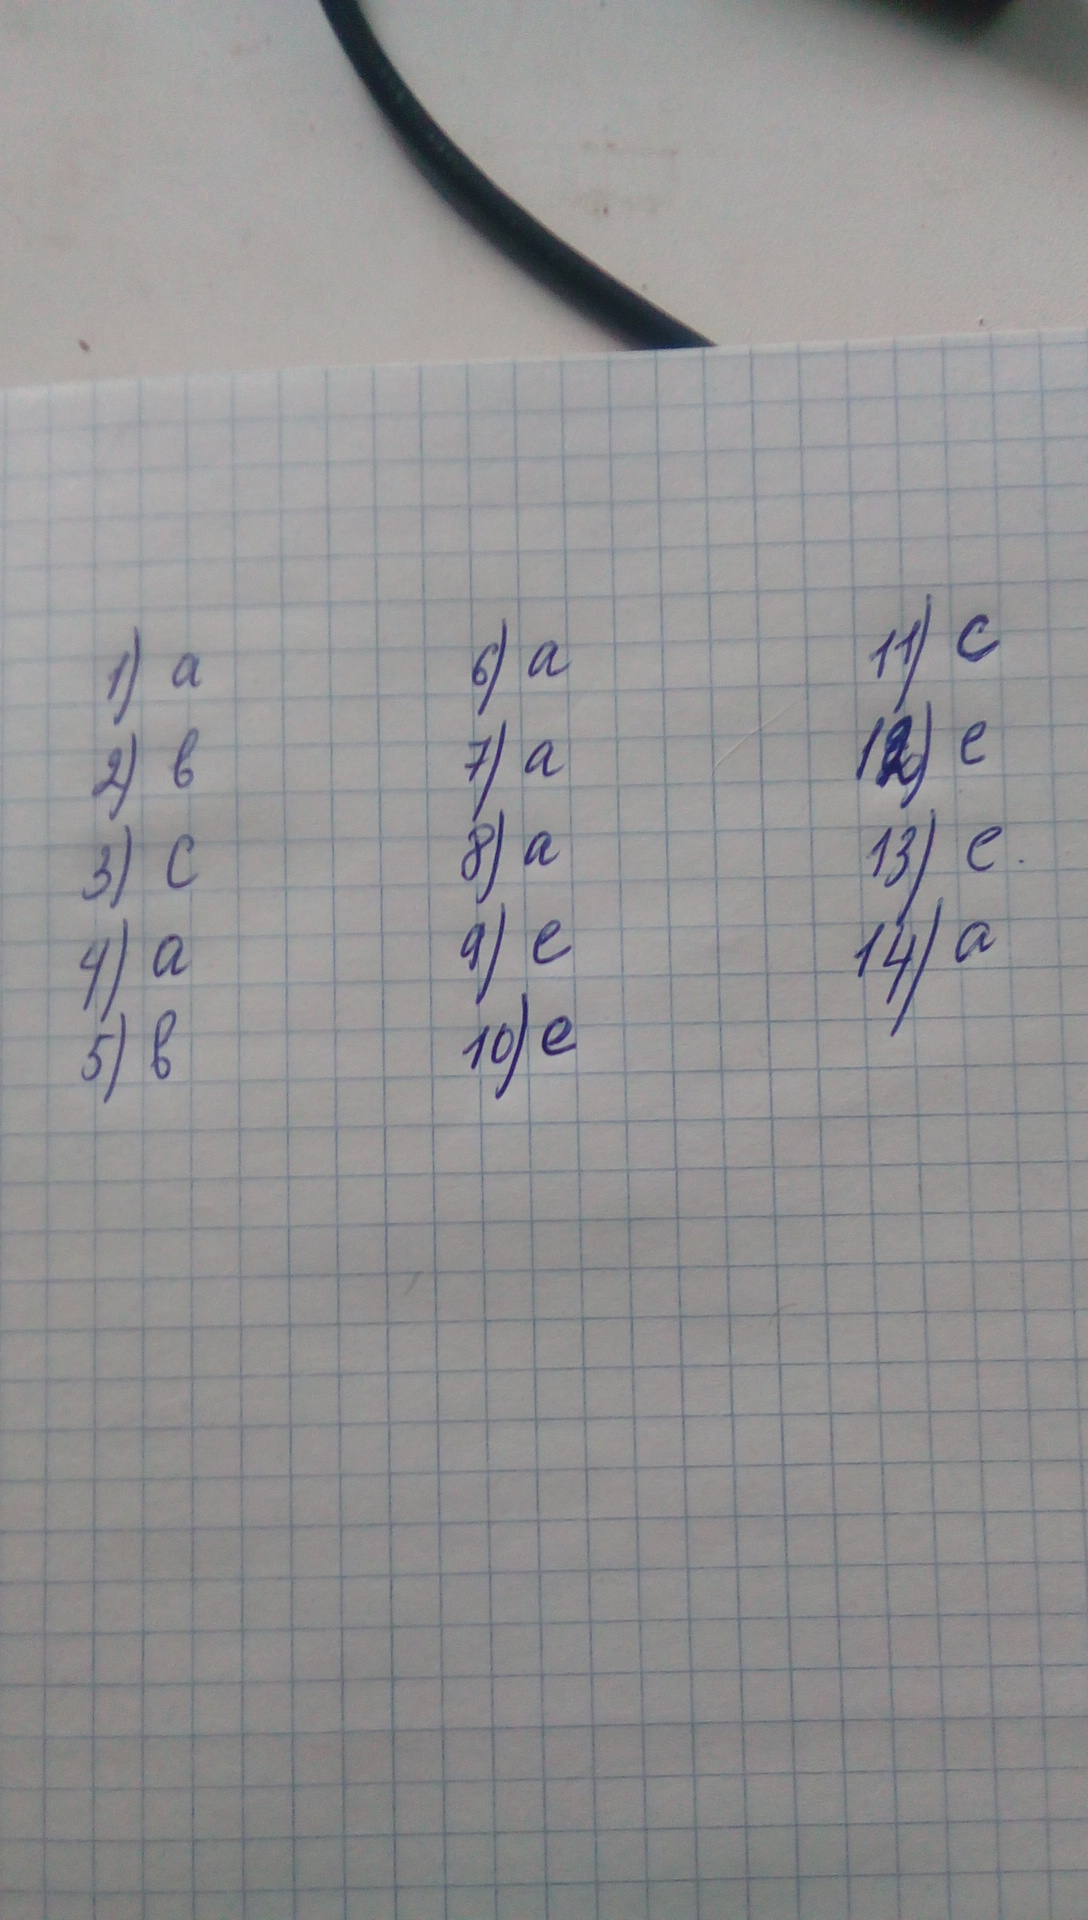 1) а
2) в
3) с
4) а
5) в
6) а
7) а
8) а
9) е
10) е
11) с
12) е
13) е.
14) а